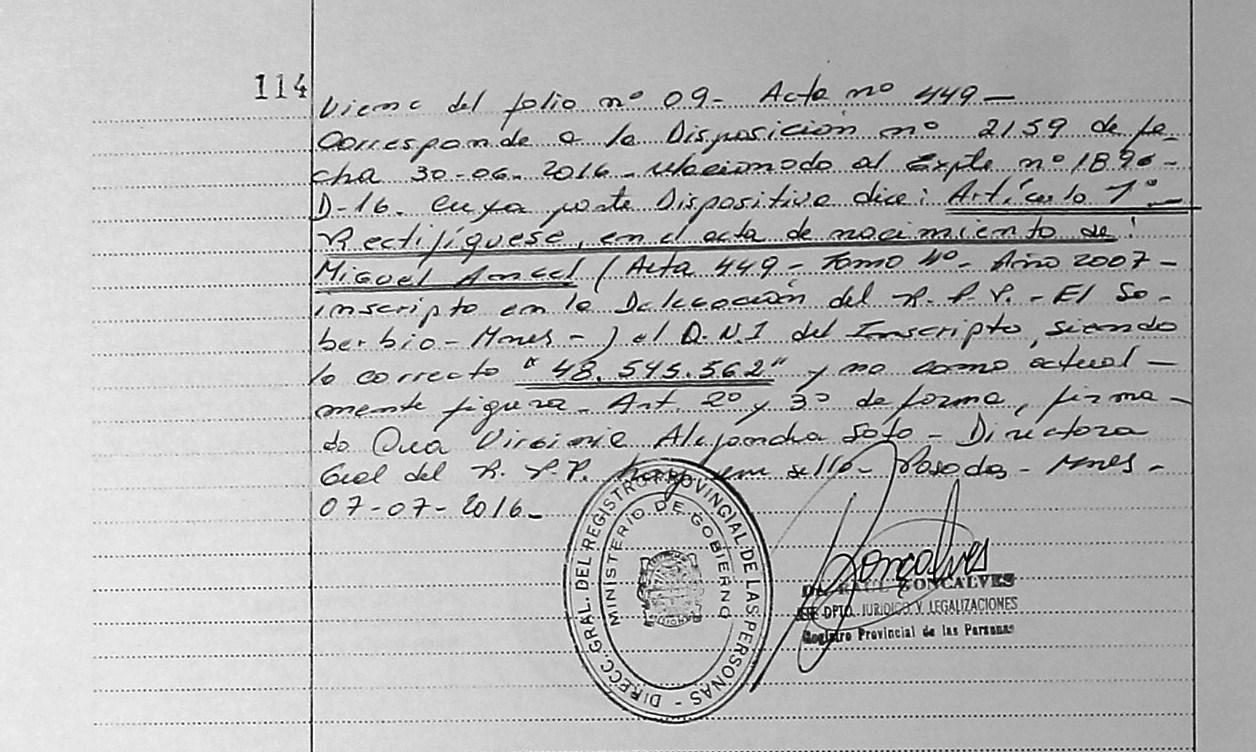 114
Viene del folio nº 09- Acta nº 449-
Corresponde a la Disposición nº 2159 de fe-
cha 30-06-2016- relacionado al Expte nº 1896-
D-16. cuya parte Dispositiva dice: Artículo 1º-
Rectifíquese, en el acta de nacimiento de:
Miguel Angel (Acta 449- Tomo 4º- Año 2007-
inscripto en la Delegación del R.P.P.- El So-
berbio- Mnes-) el D.N.I del Inscripto, siendo
lo correcto "48.545.562" y no como actual-
mente figura- Art. 2º y 3º de forma, firma-
do Dra Virginia Alejandra Soto- Directora
Gral del R.P.P. hay un sello- Posadas- Mnes-
07-07-2016-
DIRECC. GRAL. DEL REGISTRO PROVINCIAL DE LAS PERSONAS -
MINISTERIO DE GOBIERNO
Goncalves
Dr. RAUL GONCALVES
DPTO. JURIDICO Y LEGALIZACIONES
Registro Provincial de las Personas